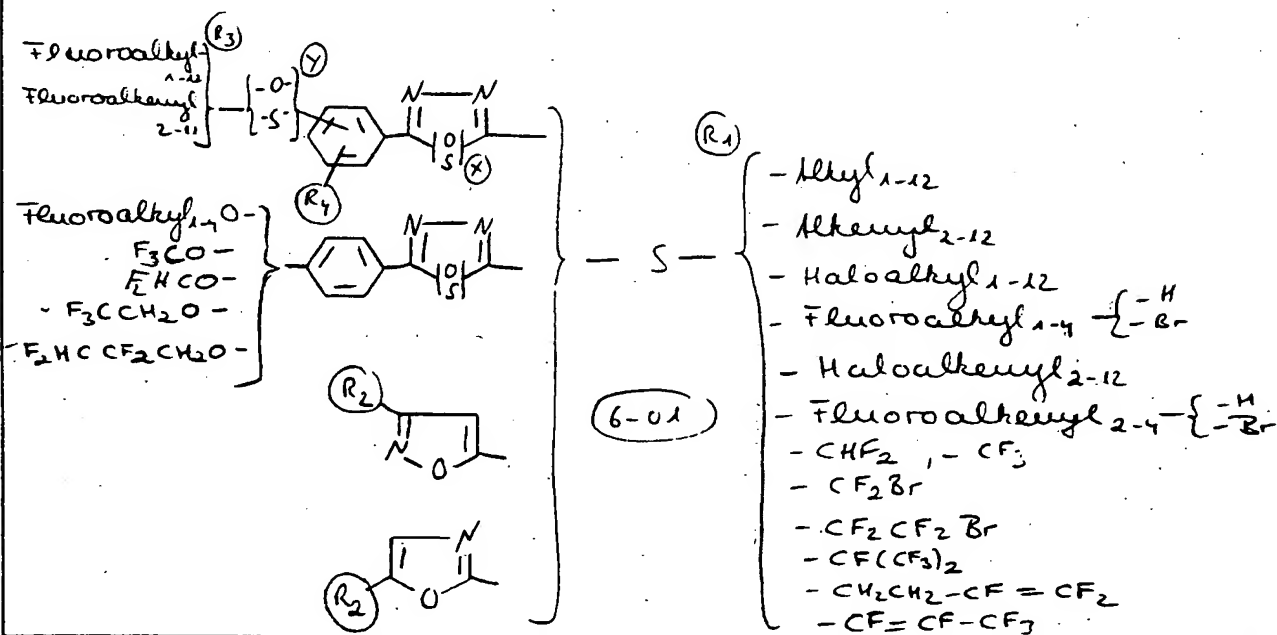 Fluoroalkyl 1-12
Fluoroalkenyl 2-12
R3
-O-
-S-
Y
N N
O
S
X
R4
Fluoroalkyl1-4 O-
F3CO-
F2HCO-
- F3CCH2O-
- F2HC CF2CH2O-
N N
O
S
R2
N O
N
R2 O
- S -
6-01
R1
- Alkyl1-12
- Alkenyl2-12
- Haloalkyl1-12
- Fluoroalkyl1-4 { -H
-Br
- Haloalkenyl2-12
- Fluoroalkenyl2-4 { -H
-Br
- CHF2 , - CF3
- CF2Br
- CF2CF2Br
- CF(CF3)2
- CH2CH2-CF=CF2
- CF=CF-CF3